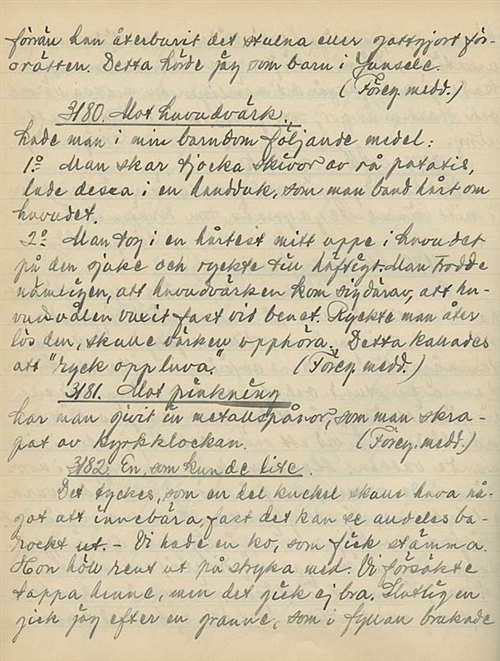 förrän han återburit det stulna eller gottgjort för-
orätten. Detta hörde jag som barn i Junsele.
(Föreg. medd.)
3180. Mot huvudvärk.
hade man i min barndom följande medel:
1:o Man skar tjocka skivor av rå potatis,
lade dessa i en handduk, som man band hårt om
huvudet.
2:o Man tog i en hårtest mitt uppe i huvudet
på den sjuke och ryckte till häftigt. Man trodde
nämligen, att huvudvärken kom sig därav, att hu-
vudsvålen vuxit fast vid benet. Ryckte man åter
lös den, skulle värken upphöra. Detta kallades
att "ryck opp luva." (Föreg. medd.)
3181. Mot pinkning
har man givit in metallspånor, som man skra-
pat av kyrkklockan. (Föreg. medd.)
3182. En, som kunde lite.
Det tyckes, som en del kuckel skulle hava nå-
got att innebära, fast det kan se andeles ba-
rockt ut. - Vi hade en ko, som fick stämma.
Hon höll rent ut på stryka med. Vi försökte
tappa henne, men det gick ej bra. Slutligen
gick jag efter en granne, som i fyllan brukade